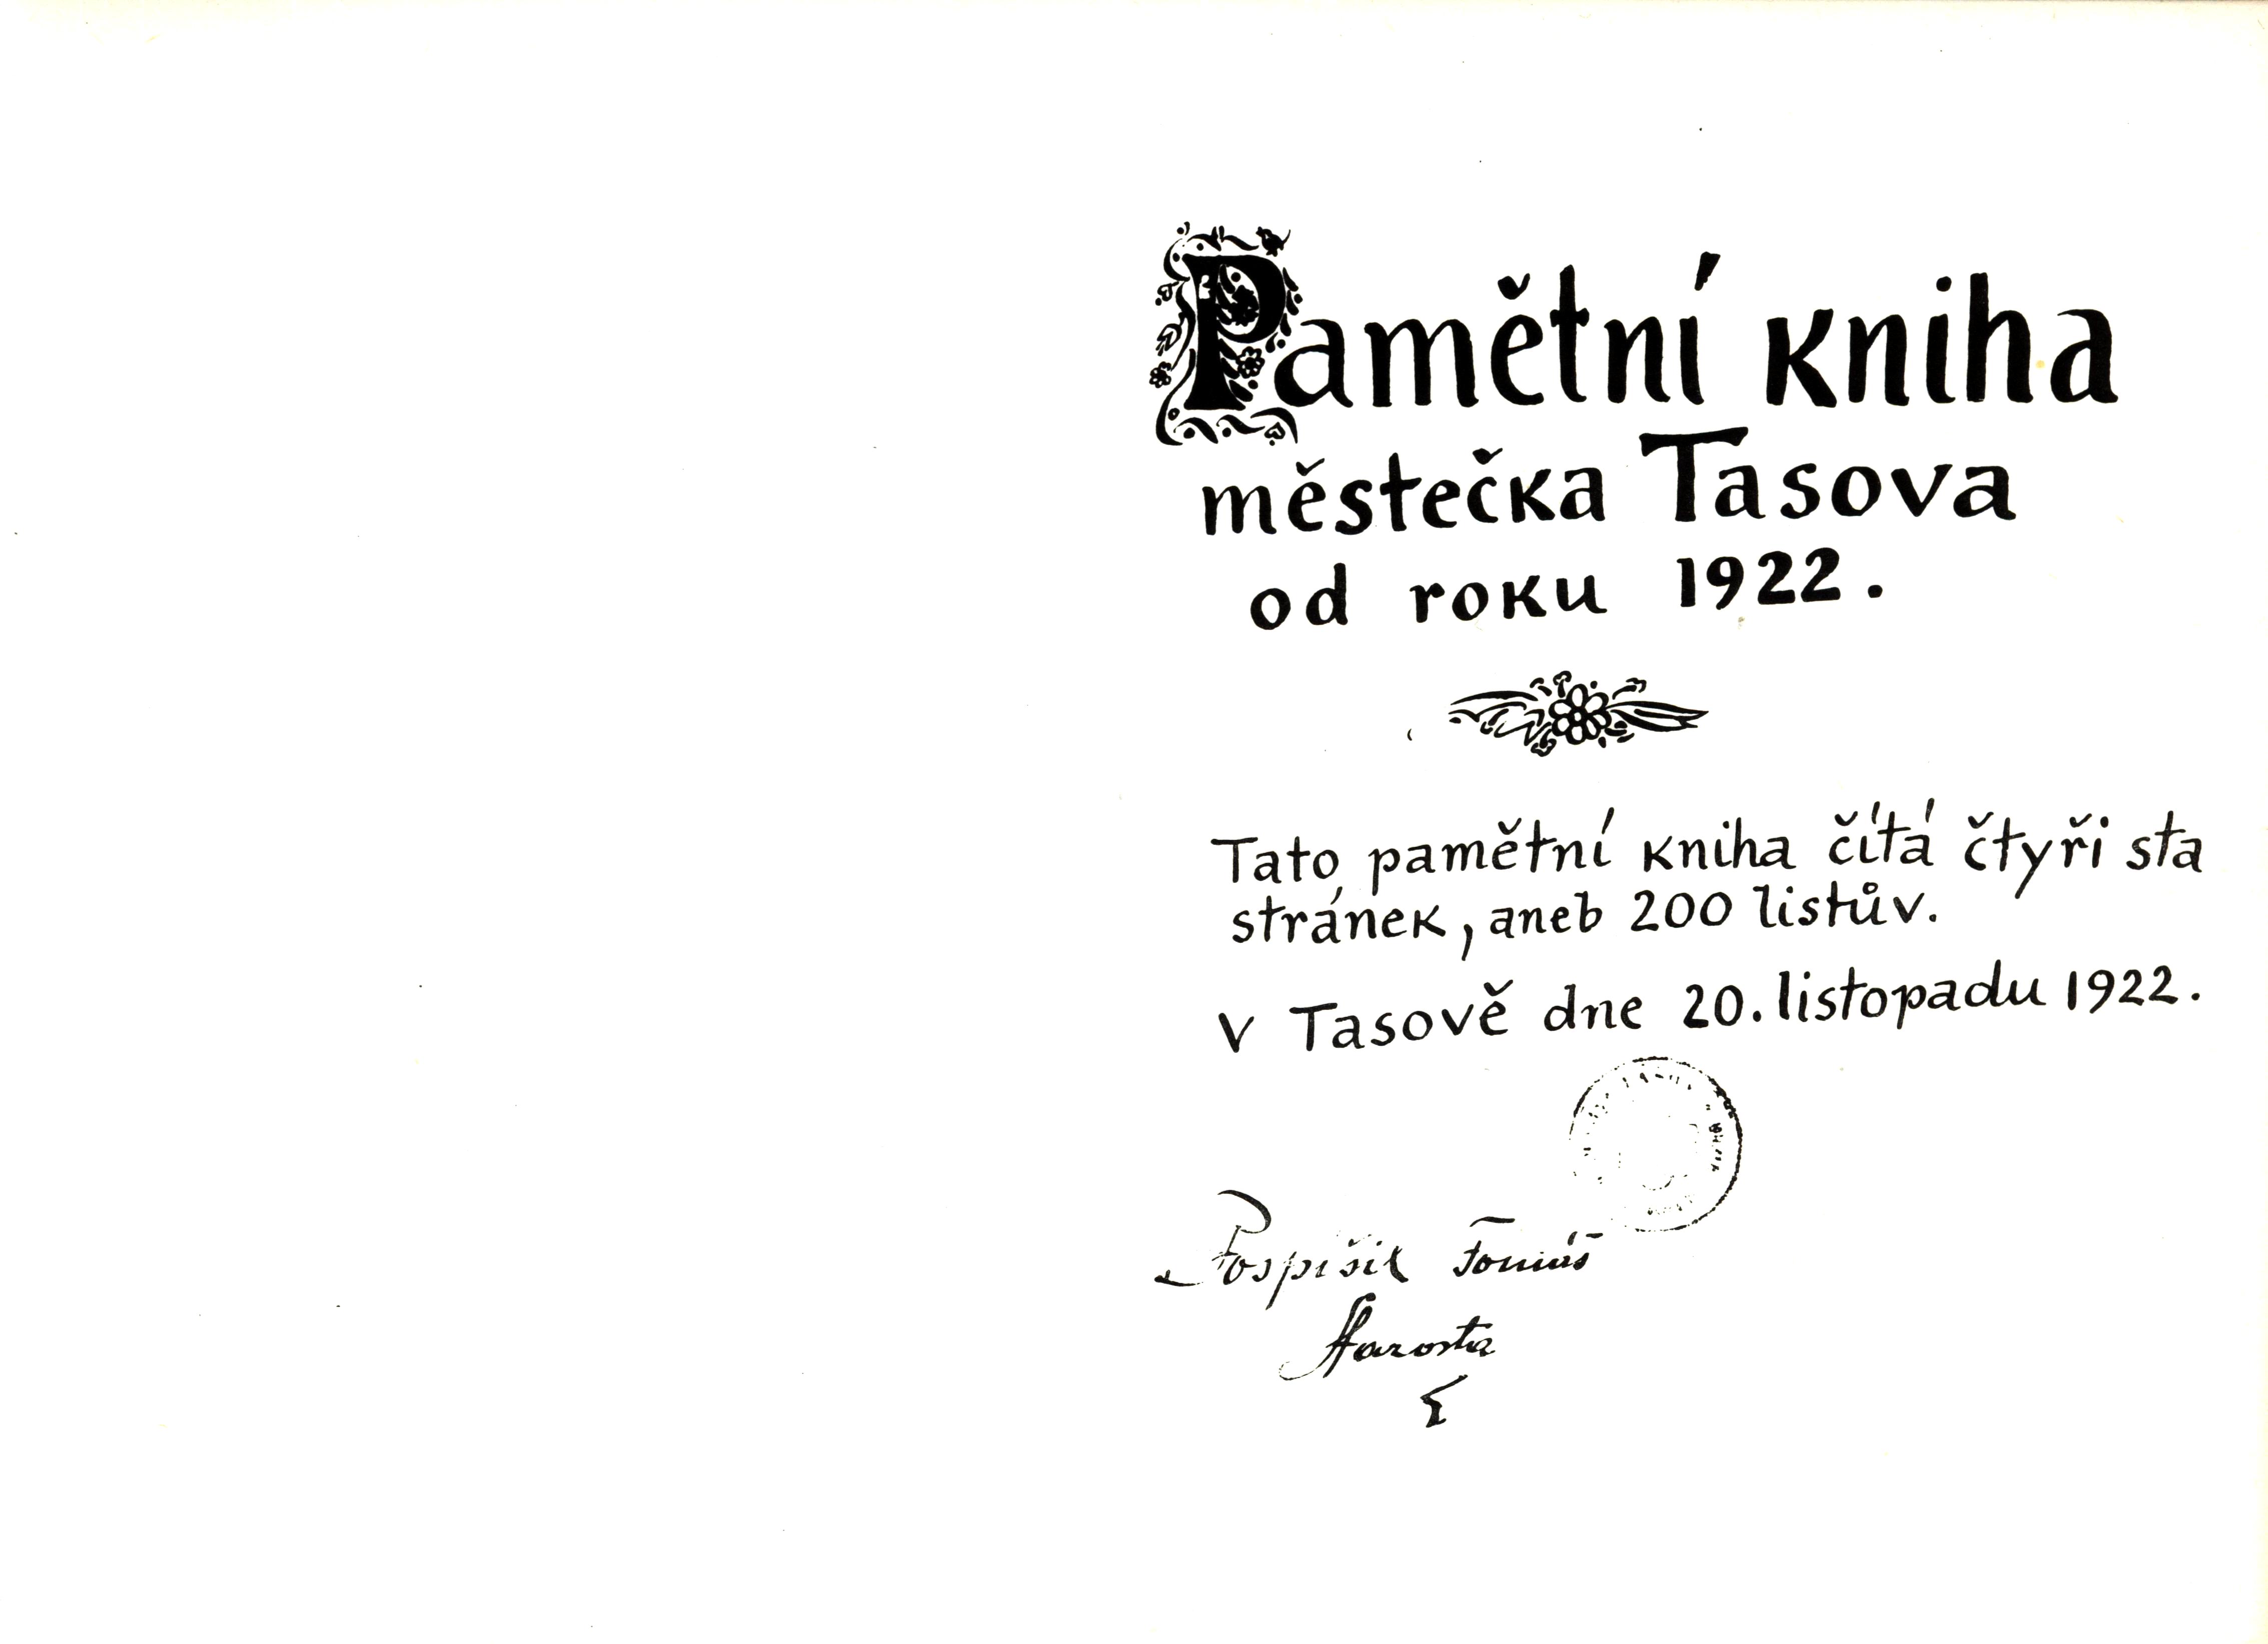 Pamětní kniha
městečka Tasova
od roku 1922.
Tato pamětní kniha čítá čtyři sta
stránek, aneb 200 listův.
v Tasově dne 20. listopadu 1922.
Pospíšil Tomáš
starosta